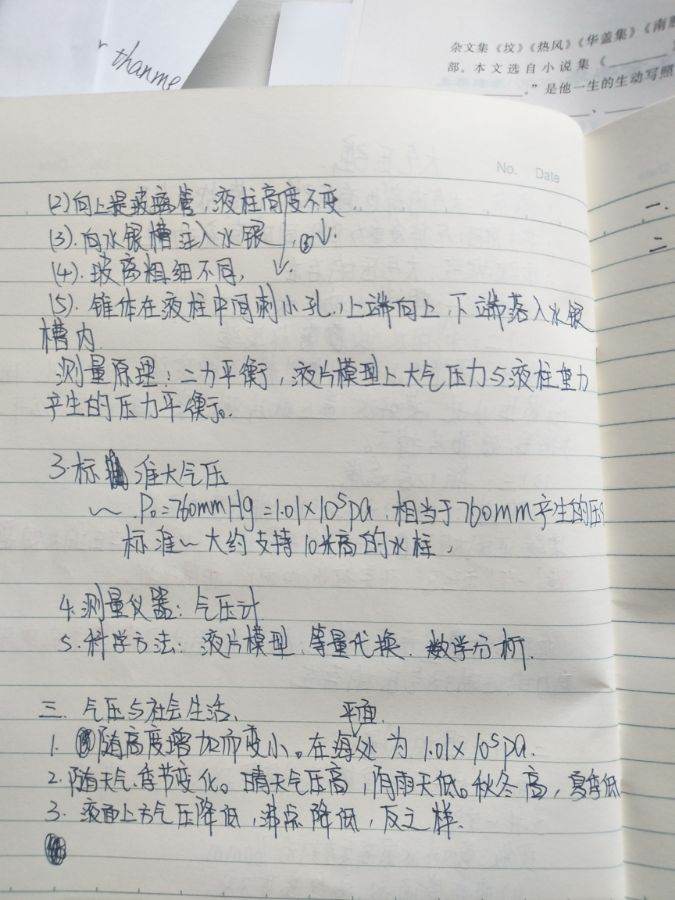 r thanme
杂文集《坟》《热风》《华盖集》《南
部。本文选自小说集《
。”是他一生的生动写照
No. Date
(2)向上提玻璃管，液柱高度不变.
(3).向水银槽注入水银，↓.
(4).玻离粗细不同, ↓.
(5).锥体在液柱中间刺小孔,上端向上,下端落入水银
槽内.
测量原理:二力平衡,液片模型上大气压力与液柱重力
产生的压力平衡。
3.标准大气压
～ P₀=760mmHg=1.01×10⁵pa,相当于760mm产生的压
标准～大约支持10米高的水柱.
4.测量仪器:气压计
5.科学方法:液片模型、等量代换、数学分析.
一.
二
三.气压与社会生活.
平面
1.随高度增加而变小。在海处为1.01×10⁵pa.
2.随天气、季节变化。晴天气压高,阴雨天低。秋冬高,夏春低
3.液面上方气压降低,沸点降低,反之一样.